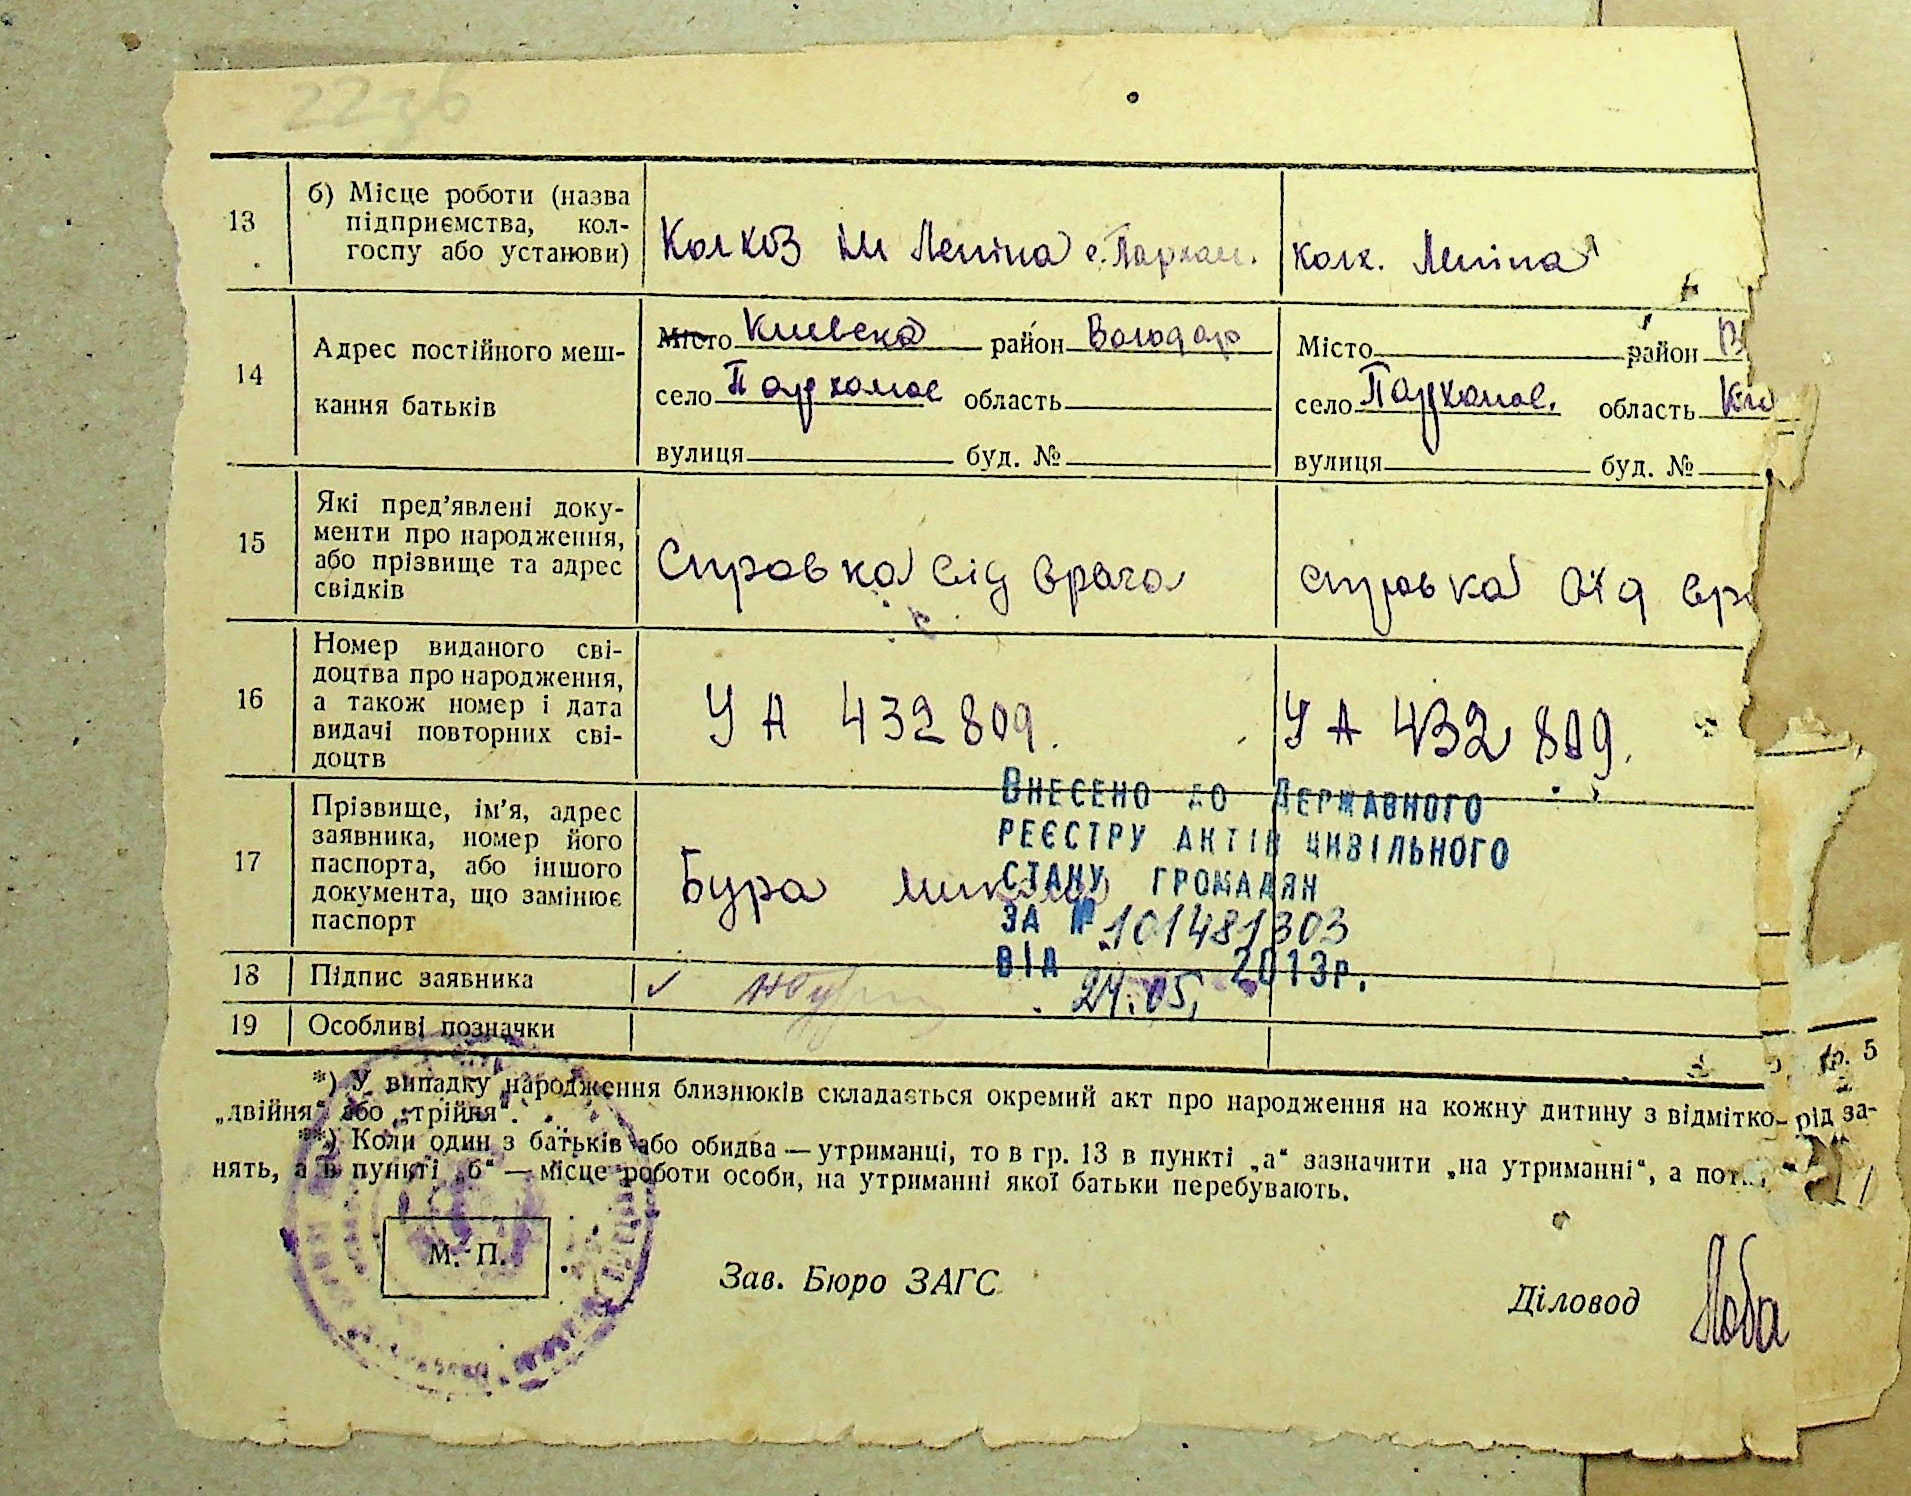 2236
13
б) Місце роботи (назва
підприємства, кол-
госпу або установи)
Колхоз ім Леніна с. Пархом.
колх. Леніна
14
Адрес постійного меш-
кання батьків
Місто Киевска район Володар
село Пархомов область
вулиця буд. №
Місто район В
село Пархомов. область Ки
вулиця буд. №
15
Які пред’явлені доку-
менти про народження,
або прізвище та адрес
свідків
Справка від врача
справка від вра
16
Номер виданого сві-
доцтва про народження,
а також номер і дата
видачі повторних сві-
доцтв
УА 432809.
УА 432809.
17
Прізвище, ім’я, адрес
заявника, номер його
паспорта, або іншого
документа, що замінює
паспорт
Бура
Внесено до Державного
реєстру актів цивільного
стану громадян
за № 101481303
від 24.05. 2013р.
18
Підпис заявника
19
Особливі позначки
гр. 5
*) У випадку народження близнюків складається окремий акт про народження на кожну дитину з відмітко-
„двійня“ або „трійня“.
рід за-
**) Коли один з батьків або обидва — утриманці, то в гр. 13 в пункті „а“ зазначити „на утриманні“, а пот
нять, а в пункті „б“ — місце роботи особи, на утриманні якої батьки перебувають.
М. П.
Зав. Бюро ЗАГС
Діловод
Лоба